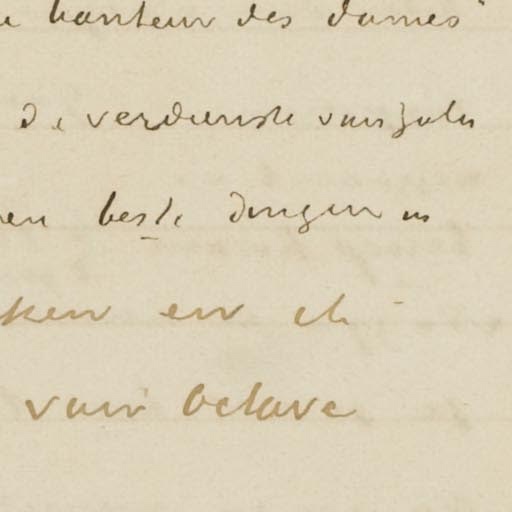 bonheur des dames"
de verdienste van Zola
en beste dingen in
ken en de
van Octave